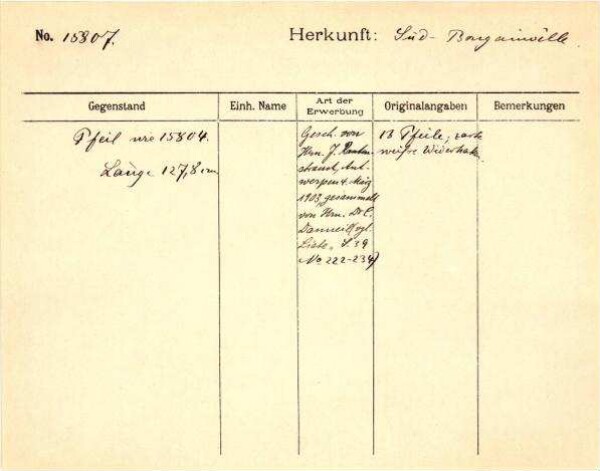 No. 15807.
Herkunft: Süd-Bougainville.
Gegenstand
Einh. Name
Art der Erwerbung
Originalangaben
Bemerkungen
Pfeil wie 15804.
Länge 127,8 cm
Gesch. von
Hrn. J. Rauten-
strauch, Ant-
werpen 4. März
1903, gesammelt
von Hrn. Dr.
Danneil (vgl.
Liste. S. 39
No 222-234)
13 Pfeile,
weiße Widerhaken.